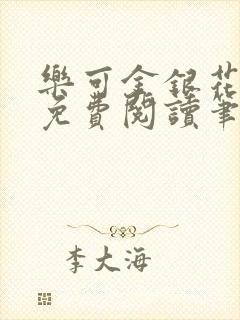 樂可金銀花
免費閱讀筆
李大海